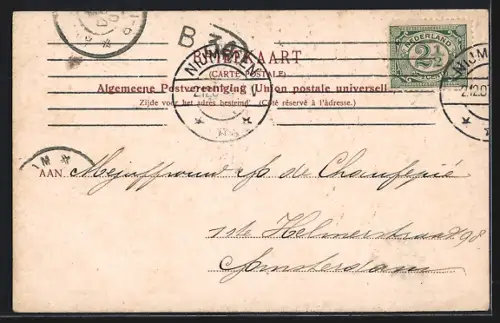 B 3
BRIEFKAART
(CARTE POSTALE)
Algemeene Postvereeniging (Union postale universelle)
Zijde voor het adres bestemd. (Côté réservé à l'adresse.)
NEDERLAND
2½
CENT
NIJM
2.12.0
AAN Mejuffrouw de Chaufepié
1ste Helmerstraat 98
Amsterdam